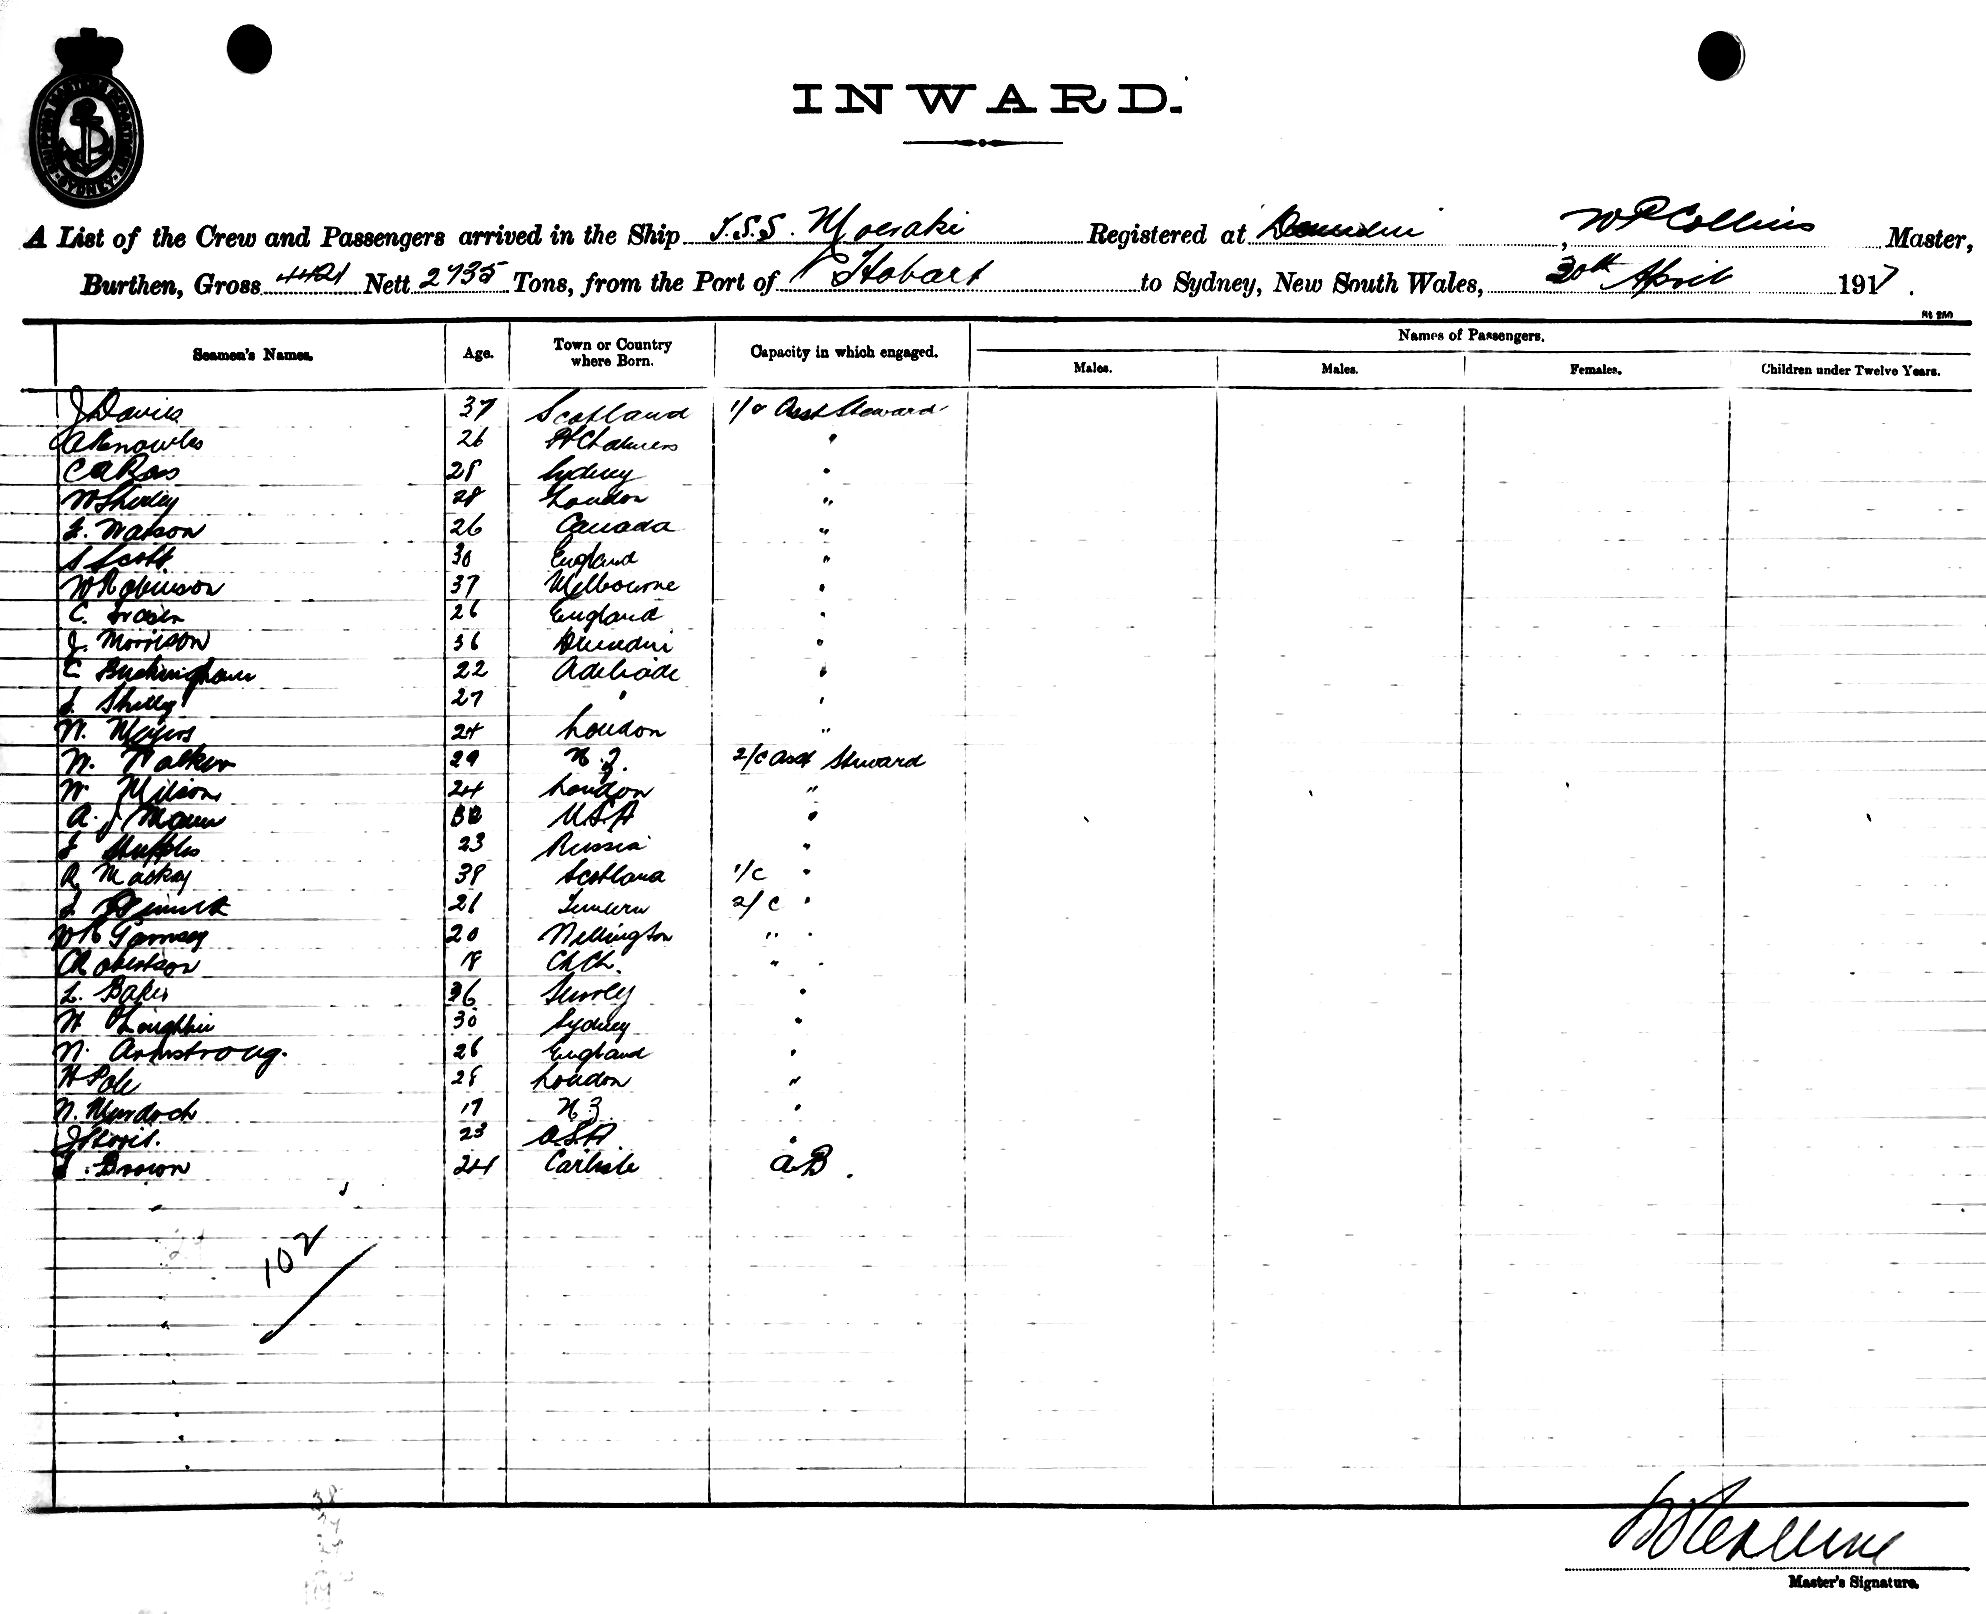 SHIPPING MASTERS DEPARTMENT SYDNEY
INWARD.
A List of the Crew and Passengers arrived in the Ship T.S.S. Moeraki Registered at Dunedin, W P Collins Master,
Burthen, Gross 4421 Nett 2735 Tons, from the Port of Hobart to Sydney, New South Wales, 30th April 1917.
Seamen's Names. Age. Town or Country where Born. Capacity in which engaged. Names of Passengers.
Males. Males. Females. Children under Twelve Years.
J Davies 37 Scotland 1/c Asst Steward
A Knowles 26 Pt Chalmers "
C A Ross 28 Sydney "
W Shirley 28 London "
F. Watson 26 Canada "
S Scott 30 England "
W Robinson 37 Melbourne "
C. Fraser 26 England "
J. Morrison 36 Dunedin "
C Buckingham 22 Adelaide "
S. Shelly 27 " "
W. Meyers 24 London "
W. Walker 29 N.Z. 2/c Asst Steward
W Wilson 24 London "
A. J Mann U.S.A "
23 Russia "
R Mackay 38 Scotland 1/c "
26 2/c "
W R Garnsey 20 Wellington " "
C Robertson 18 ChCh. " "
L. Baker 36 Surrey "
H O'Loughlin 30 Sydney "
N. Armstrong. 26 England "
H Pole 28 London "
N. Murdoch 17 N.Z "
J 23 U.S.A "
Brown 24 Carlisle A.B.
102
Master's Signature.